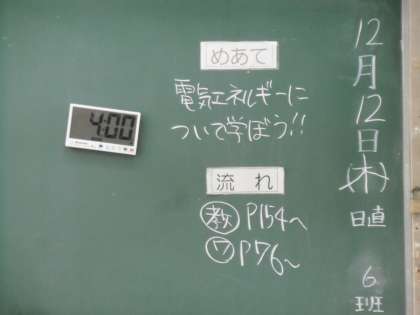 12月12日(木)
日直
6班
めあて
電気エネルギーに
ついて学ぼう!!
流れ
教 P154~
ワ P76~
4:00